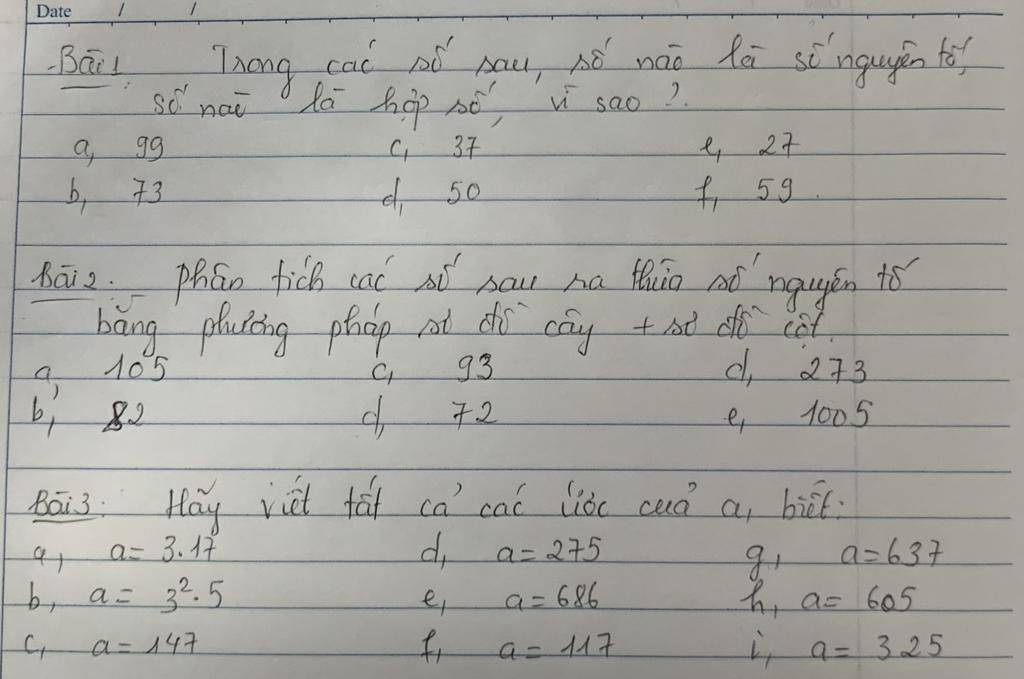 Date / /
Bài 1. Trong các số sau, số nào là số nguyên tố,
số nào là hợp số, vì sao?
a, 99 c, 37 e, 27
b, 73 d, 50 f, 59.
Bài 2. Phân tích các số sau ra thừa số nguyên tố
bằng phương pháp sơ đồ cây + sơ đồ cột.
a, 105 c, 93 d, 273
b, 82 d, 72 e, 1005
Bài 3: Hãy viết tất cả các ước của a, biết:
a, a = 3.17 d, a = 275 g, a = 637
b, a = 3².5 e, a = 686 h, a = 605
c, a = 147 f, a = 117 i, a = 325